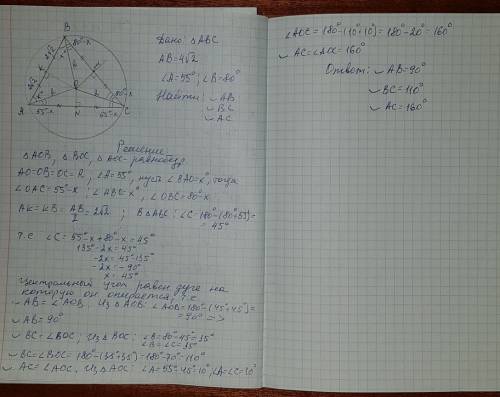 B
4√2
K
80°-x
R
O
A
55°-x
N
55°-x
C
Дано: △ABC
AB=4√2
∠A=55°; ∠B=80°
Найти: ◡AB
◡BC
◡AC
Решение
△AOB, △BOC, △AOC-равнобедр,
AO=OB=OC=R; ∠A=55°, пусть ∠BAO=x°, тогда
∠OAC=55°-x; ∠ABO=x°, ∠OBC=80°-x.
AK=KB=AB/2=2√2; В △ABC: ∠C=180°-(80°+55°)=
=45°
т.е ∠C=55°-x+80°-x=45°
135°-2x=45°
-2x=45°-135°
-2x=-90°
x=45°
Центральный угол равен дуге на
которую он опирается, т.е
◡AB=∠AOB. Из △AOB: ∠AOB=180°-(45°+45°)=
=90° =>
◡AB=90°
◡BC=∠BOC; Из △BOC: ∠B=80°-45°=35°
∠B=∠C=35°
◡BC=∠BOC=180°-(35°+35°)=180°-70°=110°
◡AC=∠AOC. Из △AOC: ∠A=55°-45°=10°, ∠A=∠C=10°
∠AOC=180°-(10°+10°)=180°-20°=160°
◡AC=∠AOC=160°
Ответ: ◡AB=90°
◡BC=110°
◡AC=160°